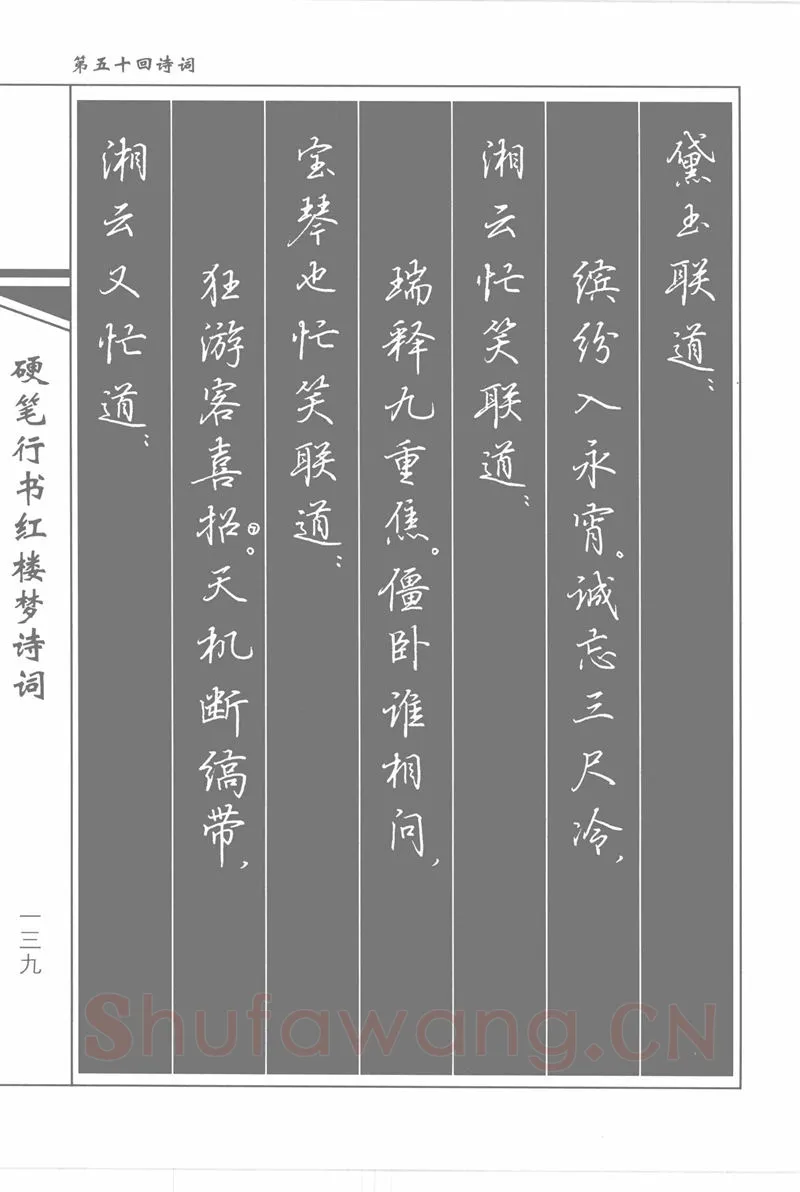 第五十回诗词
黛玉联道：
缤纷入永宵。诚忘三尺冷，
湘云忙笑联道：
瑞释九重焦。僵卧谁相问，
宝琴也忙笑联道：
狂游客喜招⑦。天机断缟带，
湘云又忙道：
硬笔行书红楼梦诗词
一三九
Shufawang.CN